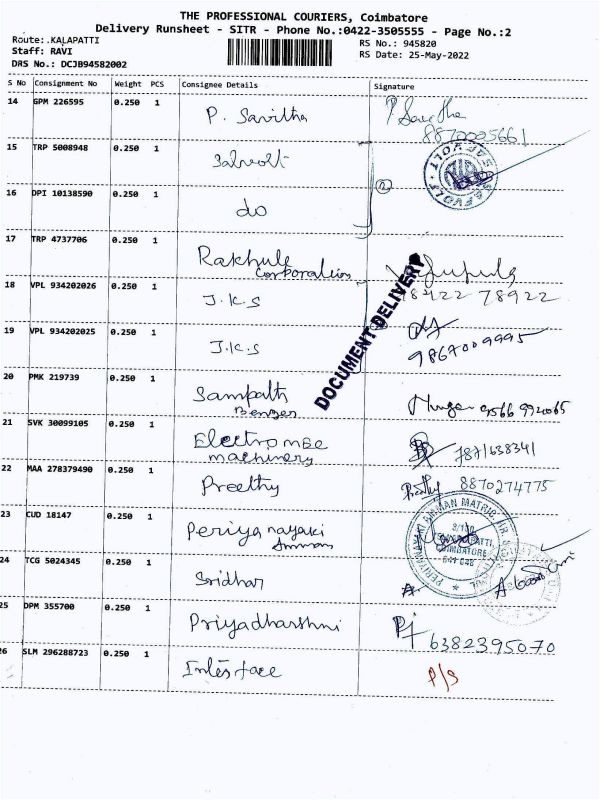 THE PROFESSIONAL COURIERS, Coimbatore
Delivery Runsheet - SITR - Phone No.:0422-3505555 - Page No.:2
Route:.KALAPATTI
RS No.: 945820
Staff: RAVI
RS Date: 25-May-2022
DRS No.: DCJB94582002
S No Consignment No Weight PCS Consignee Details Signature
14 GPM 226595 0.250 1 P. Savitha
8870005661
15 TRP 5008948 0.250 1
16 DPI 10138590 0.250 1 do
2
17 TRP 4737706 0.250 1 Rakhule
Corporation
18 VPL 934202026 0.250 1 J.K.S
78922
19 VPL 934202025 0.250 1 J.K.S
9867009995
DOCUMENT DELIVERY
20 PMK 219739 0.250 1 Sampath
9566 992065
21 SVK 30099105 0.250 1 Electro mBe
machinery
7871638341
22 MAA 278379490 0.250 1 Preethy Preethy 8870274775
23 CUD 18147 0.250 1 Periya nayaki
Amman
COIMBATORE
641 048
24 TCG 5024345 0.250 1 Sridhar
25 DPM 355700 0.250 1 Priyadharshni
6382395070
26 SLM 296288723 0.250 1 Interface P/S